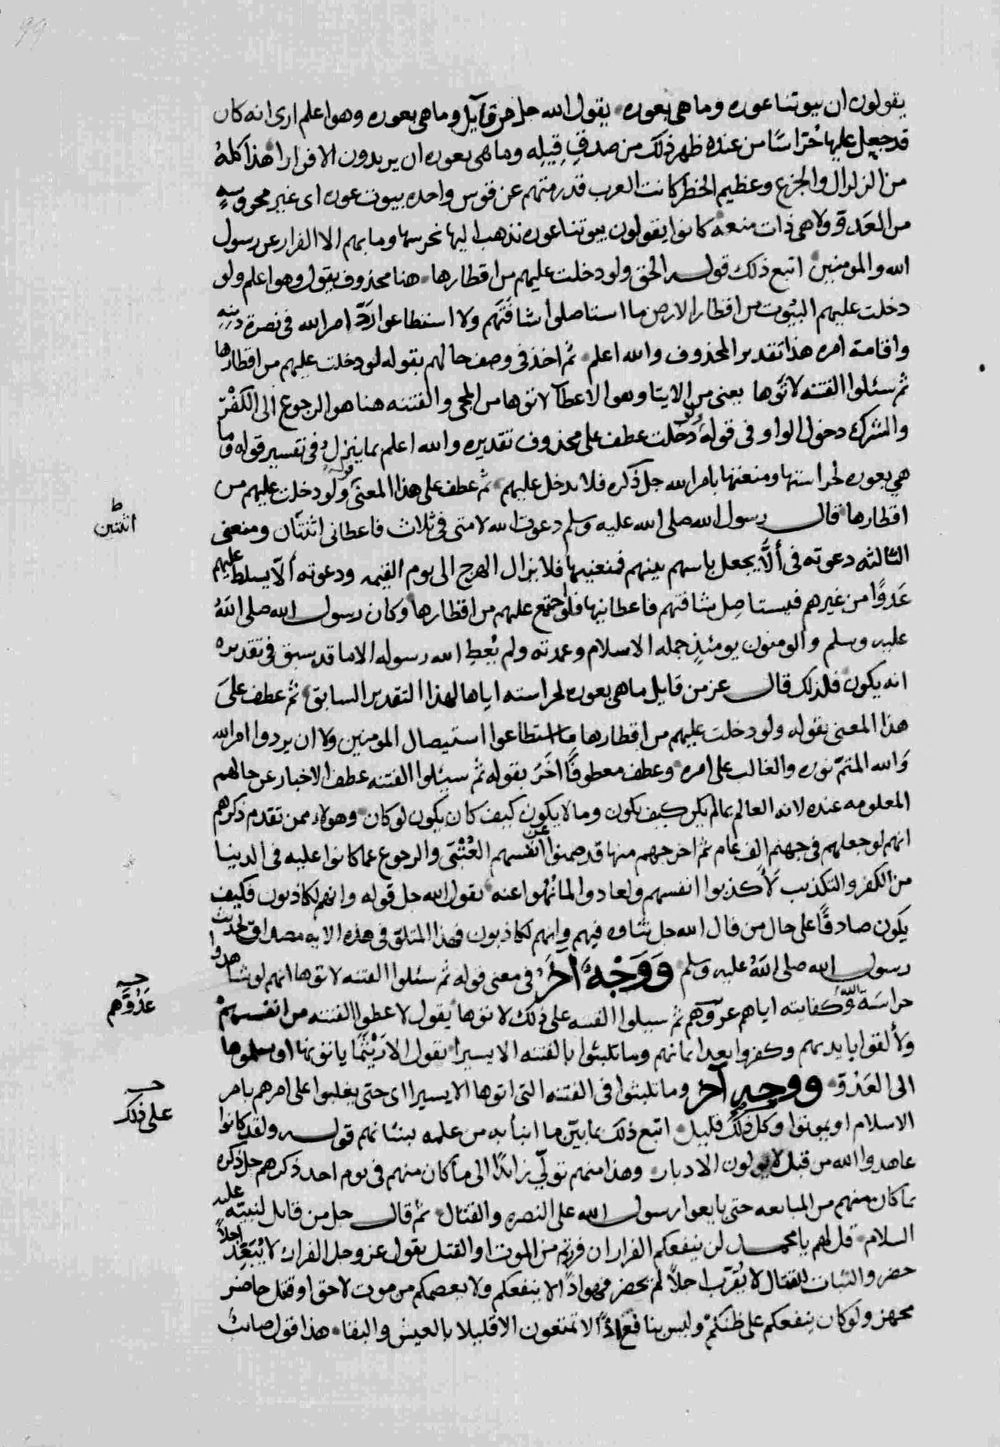 يقولون ان بيوتنا عوره وما هى بعوره يقول الله جل من قايل وما هى بعوره وهو اعلم ارى انه كان
قد جعل عليها حُرّاسًا من عنده ظهر ذلك من صدقِ قيله وما هى بعوره ان يريدون الا فرارا هذا كله
من الزلزال والجزع وعظيم الخطر كانت العرب قد رمتهم عن قوس واحده بيوت عوره اى غير محروسه
من العدو ولا هى ذات منعه كانوا يقولون بيوتنا عوره نذهب اليها نحرسها وما بهم الا الفرار عن رسول
الله والمومنين اتبع ذلك قوله الحق ولو دخلت عليهم من اقطارها هنا محذوف يقول وهو اعلم ولو
دخلت عليهم البيوت من اقطار الارض ما استاصلوا شافتهم ولا استطاعوا ردّ امر الله فى نصرة دينه
واقامة امره هذا تقدير المحذوف والله اعلم ثم اخذ فى وصف حالهم بقوله لو دخلت عليهم من اقطارها
ثم سئلوا الفتنه لاتوها بمعنى من الايتا وهو الاعطآ لاتوها من المجى والفتنه هنا هو الرجوع الى الكفر
والشرك دخول الواو فى قوله ولو دخلت عطف على محذوف تقديره والله اعلم بما ينزل فى تفسير قوله وما
هى بعوره لحراستها ومنعتها بامر الله جل ذكره فلا يدخل عليهم ثم عطف على هذا المعنى قوله ولو دخلت عليهم من
اقطارها قال رسول الله صلى الله عليه وسلم دعوت الله لامتى فى ثلاث فاعطانى اثنتان ومنعنى
اثنتين
الثالثه دعوته فى ألّا يجعل باسهم بينهم فمنعنيها فلا يزال الهرج الى يوم القيمه ودعوته ألّا يسلط عليهم
عدوًا من غيرهم فيستاصل شافتهم فاعطانيها فلو اجتمع عليهم من اقطارها وكان رسول الله صلى الله
عليه وسلم والمومنون يومئذٍ جمله الاسلام وعمدته ولم يُعطِ الله رسوله الا ما قد سبق فى تقديره
انه يكون فلذلك قال عز من قايل ما هى بعوره لحراسته اياها لهذا التقدير السابق ثم عطف على
هذا المعنى بقوله ولو دخلت عليهم من اقطارها ما استطاعوا استيصال المومنين ولا ان يردوا امر الله
والله المتمّ نوره والغالب على امره وعطف معطوفًا اخر بقوله ثم سيلوا الفتنه عطف الاخبار عن حالهم
المعلومه عنده لانه العالم بما لم يكن كيف يكون وما لا يكون كيف كان يكون لو كان وهولاء ممن تقدم ذكرهم
انهم لو جعلهم فى جهنم الف عام ثم اخرجهم منها قد ضمنوا عن انفسهم العُتْبَى والرجوع عما كانوا عليه فى الدنيا
من الكفر والتكذيب لاكذبوا انفسهم ولعادوا لما نُهُوا عنه يقول الله جل قوله وانهم لكاذبون فكيف
يكون صادقًا على حال من قال الله جل شاوه فيهم وانهم لكاذبون فهذا المتلوّ فى هذه الايه مصداق لحديث
رسول الله صلى الله عليه وسلم وَوَجْهٌ آخَر فى معنى قوله ثم سئلوا الفتنه لاتوها انهم لو شاهدوا
حراسة الله وكفايته اياهم عدوهم ثم سيلوا الفتنه على ذلك لاتوها يقول لاعطوا الفتنه من انفسهم
عَدُوَّهم
ولالقوا بايديهم وكفروا بعد ايمانهم وما تلبثوا بالفتنه الا يسيرا يقول الا ريثما ياتونها او يسلموها
الى العدو ووجه آخر وما تلبثوا فى الفتنه التى اتوها الا يسيرا اى حتى يغلبوا على امرهم بامر
الاسلام او يموتوا وكل ذلك قليل اتبع ذلك بما بيّن ما انبأ به من علمه بنبائهم قوله ولقد كانوا
على ذلك
عاهدوا الله من قبل لا يولون الادبار وهذا منهم تولّى زايدًا الى ما كان منهم فى يوم احد ذكرهم جل ذكره
بما كان منهم من المبايعه حتى بايعوا رسول الله على النصره والقتال ثم قال جل من قايل لنبيه عليه
السلام قل لهم يا محمد لن ينفعكم الفرار ان فررتم من الموت او القتل يقول عز وجل الفرار لا يُبَعِّد اجلاً
حضر والثبات للقتال لا يُقرّب اجلاً لم يحضر فهواذًا لا ينفعكم ولا يعصمكم من موت لاحق او قتل حاضر
مجهز ولو كان ينفعكم على ظنكم وليس بنافع اذًا لا تمتعون الا قليلا بالعيش والبقا هذا قول صايب